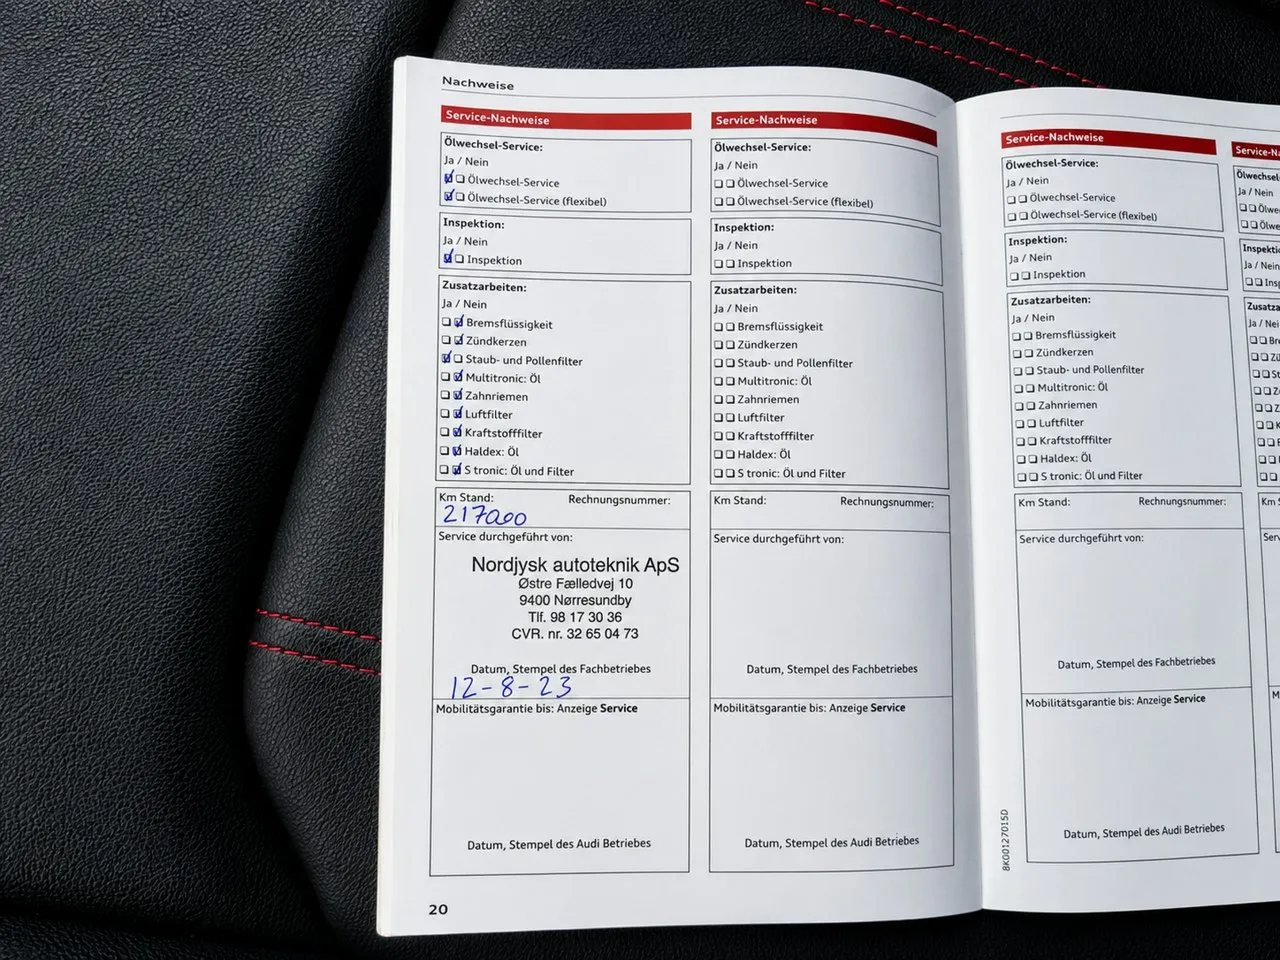 Nachweise
Service-Nachweise
Ölwechsel-Service:
Ja / Nein
Ölwechsel-Service
Ölwechsel-Service (flexibel)
Inspektion:
Ja / Nein
Inspektion
Zusatzarbeiten:
Ja / Nein
Bremsflüssigkeit
Zündkerzen
Staub- und Pollenfilter
Multitronic: Öl
Zahnriemen
Luftfilter
Kraftstofffilter
Haldex: Öl
S tronic: Öl und Filter
Km Stand: Rechnungsnummer:
217000
Service durchgeführt von:
Nordjysk autoteknik ApS
Østre Fælledvej 10
9400 Nørresundby
Tlf. 98 17 30 36
CVR. nr. 32 65 04 73
Datum, Stempel des Fachbetriebes
12-8-23
Mobilitätsgarantie bis: Anzeige Service
Datum, Stempel des Audi Betriebes
20
Service-Nachweise
Ölwechsel-Service:
Ja / Nein
Ölwechsel-Service
Ölwechsel-Service (flexibel)
Inspektion:
Ja / Nein
Inspektion
Zusatzarbeiten:
Ja / Nein
Bremsflüssigkeit
Zündkerzen
Staub- und Pollenfilter
Multitronic: Öl
Zahnriemen
Luftfilter
Kraftstofffilter
Haldex: Öl
S tronic: Öl und Filter
Km Stand: Rechnungsnummer:
Service durchgeführt von:
Datum, Stempel des Fachbetriebes
Mobilitätsgarantie bis: Anzeige Service
Datum, Stempel des Audi Betriebes
Service-Nachweise
Ölwechsel-Service:
Ja / Nein
Ölwechsel-Service
Ölwechsel-Service (flexibel)
Inspektion:
Ja / Nein
Inspektion
Zusatzarbeiten:
Ja / Nein
Bremsflüssigkeit
Zündkerzen
Staub- und Pollenfilter
Multitronic: Öl
Zahnriemen
Luftfilter
Kraftstofffilter
Haldex: Öl
S tronic: Öl und Filter
Km Stand: Rechnungsnummer:
Service durchgeführt von:
Datum, Stempel des Fachbetriebes
Mobilitätsgarantie bis: Anzeige Service
Datum, Stempel des Audi Betriebes
8K00127015D
Ja / Nein
Ja / Nein